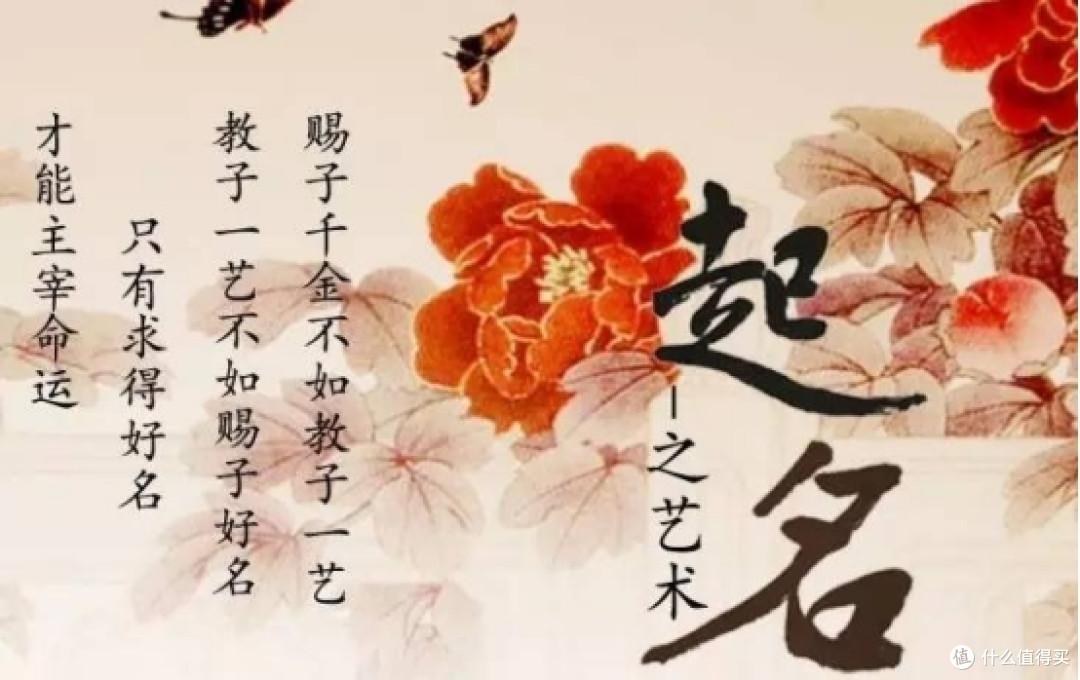 起名
之艺术
赐子千金不如教子一艺
教子一艺不如赐子好名
只有求得好名
才能主宰命运
值 什么值得买